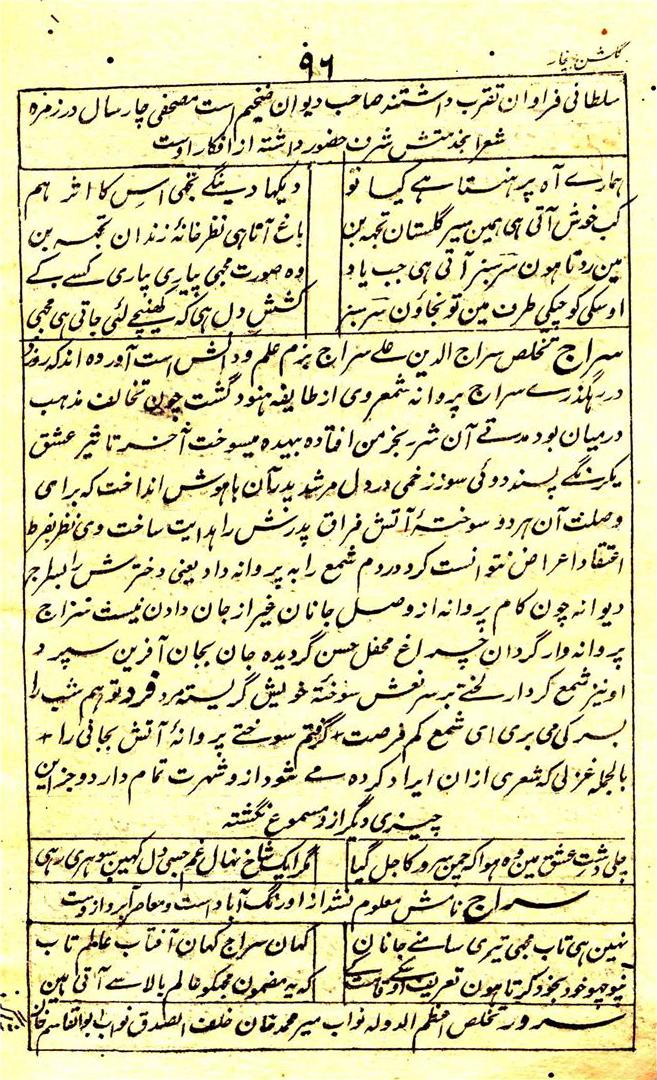 گلشن بیخار
۹۶
سلطانی فراوان تقرب داشتند صاحب دیوان ضخیم است مصحفی چار سال در زمره
شعرا بخدمتش شرف حضور داشته از افکار اوست
ہمارے آہ پر ہنستا ہے کیا تو دیکھا دینگے تجہی اسِ کا اثر ہم
کب خوش آتی ہی ہمین سیر گلستان تجہ بن باغ آتا ہی نظر خانۂ زندان تجہ بن
مین روتا ہون سرسبز آتی ہی جب یاد وہ صورت مجہی پیاری پیاری کسے کے
اوسکی کوچکی طرف مین تو نجاؤن سرسبز کششِ دل ہی کہ کھینچے لئی جاتی ہی مجہی
سراج تخلص سراج الدین علے سراج بزم علم و دانش است آورده اند که روزی
در رہگذرے سراج پروانۂ شمعروی از طایفه ہنود گشت چون تخالف مذہب
درمیان بود مدتے آن شرر بخرمن افتاده بیہده میسوخت آخر تاثیر عشق
یکرنگے پسند دوئی سوز زخمی در دل مرشد پدر آن باہوش انداخت که برای
وصلت آن ہر دو سوختۂ آتش فراق پدرش را ہدایت ساخت وی نظر بفرط
اعتقاد اعراض نتوانست کرد در دم شمع را به پروانه داد یعنی دخترش را بسراج
دیوانه چون کام پروانه از وصل جانان غیر از جان دادن نیست سراج
پروانه وار گردان چراغ محفل حسن گردیده جان بجان آفرین سپرد و
او نیز شمع کردار لختے بر سر نعش سوختۂ خویش گریسته مرد فرد تو ہم شب را
بسر کی می بری ای شمع کم فرصت + گرفتم سوختے پروانۂ آتش بجانی را +
بالجمله غزلی که شعری از ان ایراد کرده مے شود از و شہرت تمام دارد و جز این
چیزی دیگر از و مسموع نگشته
چلی دشتِ عشق مین وہ ہوا کہ چمن سرور کا جل گیا مگر ایک شاخ نہال غم جسی دل کہین سو ہری رہی
سراج نامش معلوم نشد از اورنگ آباد است و معاصر آبرو ازوست
نہین ہی تاب مجہی تیری سامنے جانان کہان سراج کہان آفتاب عالم تاب
نپوچہو خود بخود کرتا ہون تعریف اوسکے قامت کے کہ یہ مضمون مجہکو عالم بالا سے آتی ہین
سرور تخلص اعظم الدوله نواب میر محمد خان خلف الصدق نواب ابوالقاسم خان